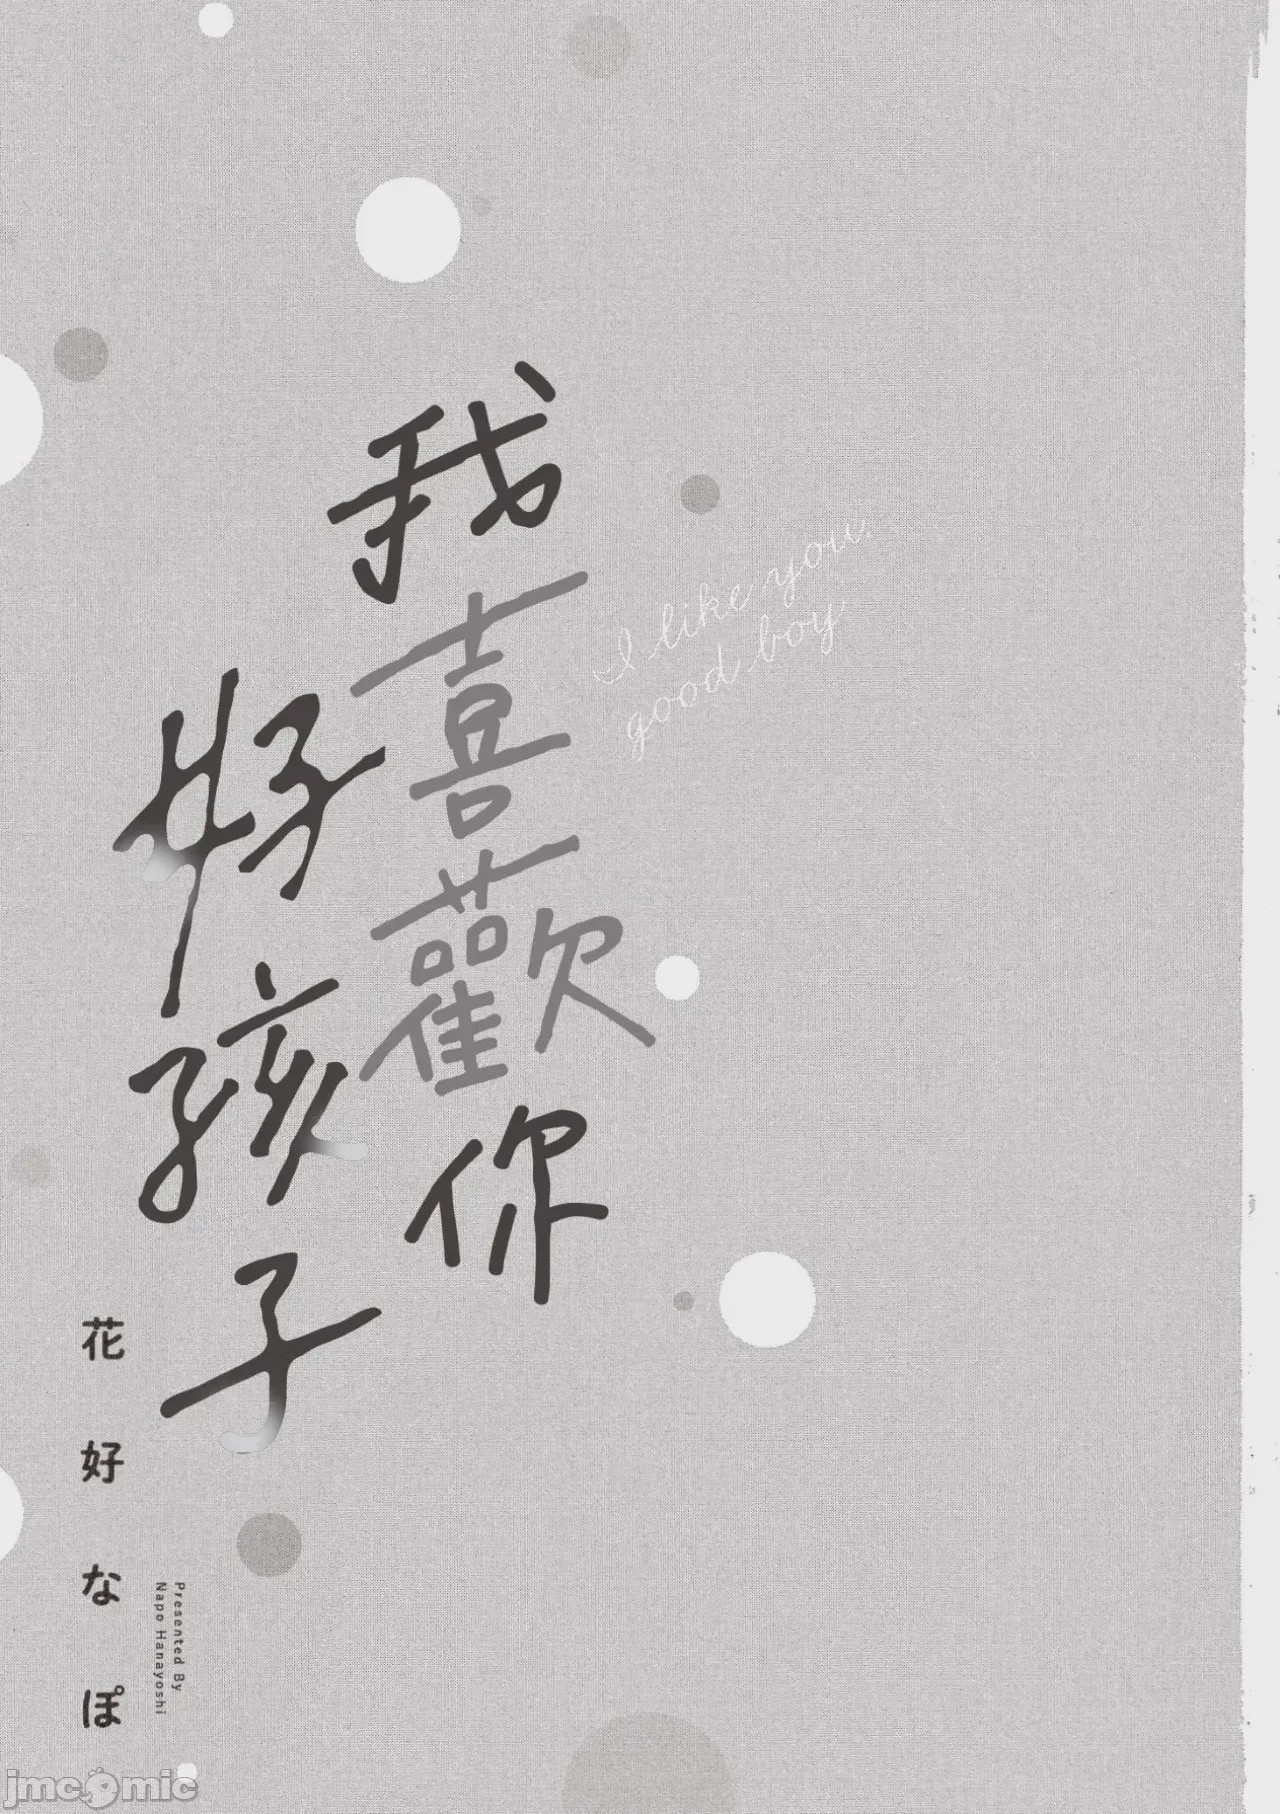 我喜歡你
好孩子
I like you,
good boy
花好なぽ
Presented By
Napo Hanayoshi
jmcomic